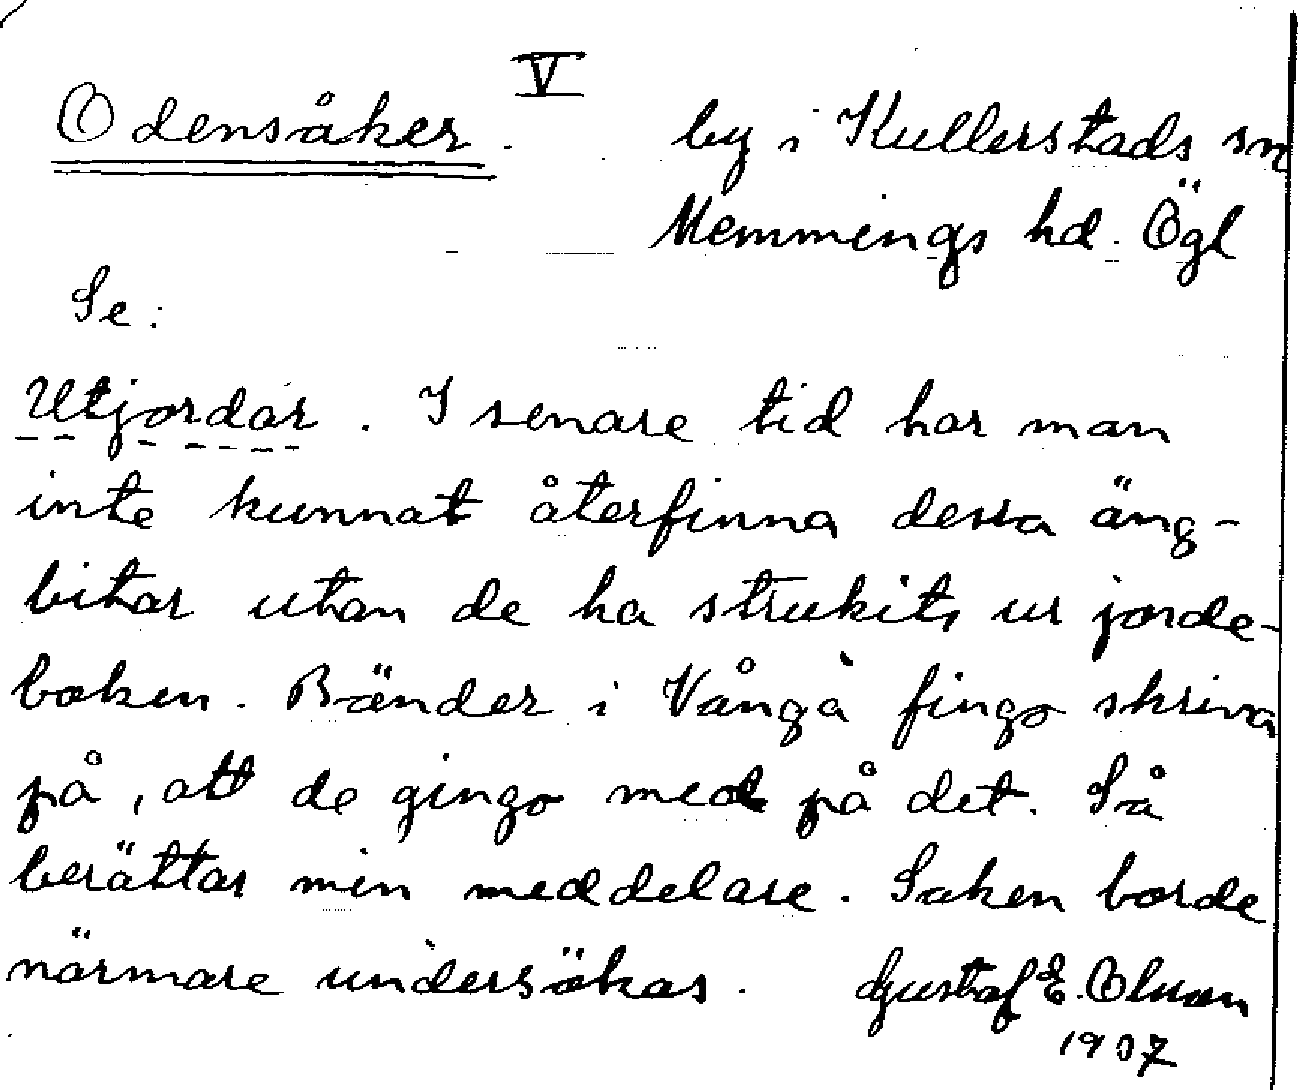 V
Odensåker. by i Kullerstads sn
Memmings hd. Ögl
Se:
Utjordar. I senare tid har man
inte kunnat återfinna dessa äng-
bitar utan de ha strukits ur jorde-
boken. Bönder i Vånga fingo skriva
på, att de gingo med på det. Så
berättar min meddelare. Saken borde
närmare undersökas. Gustaf E. Olsson
1907